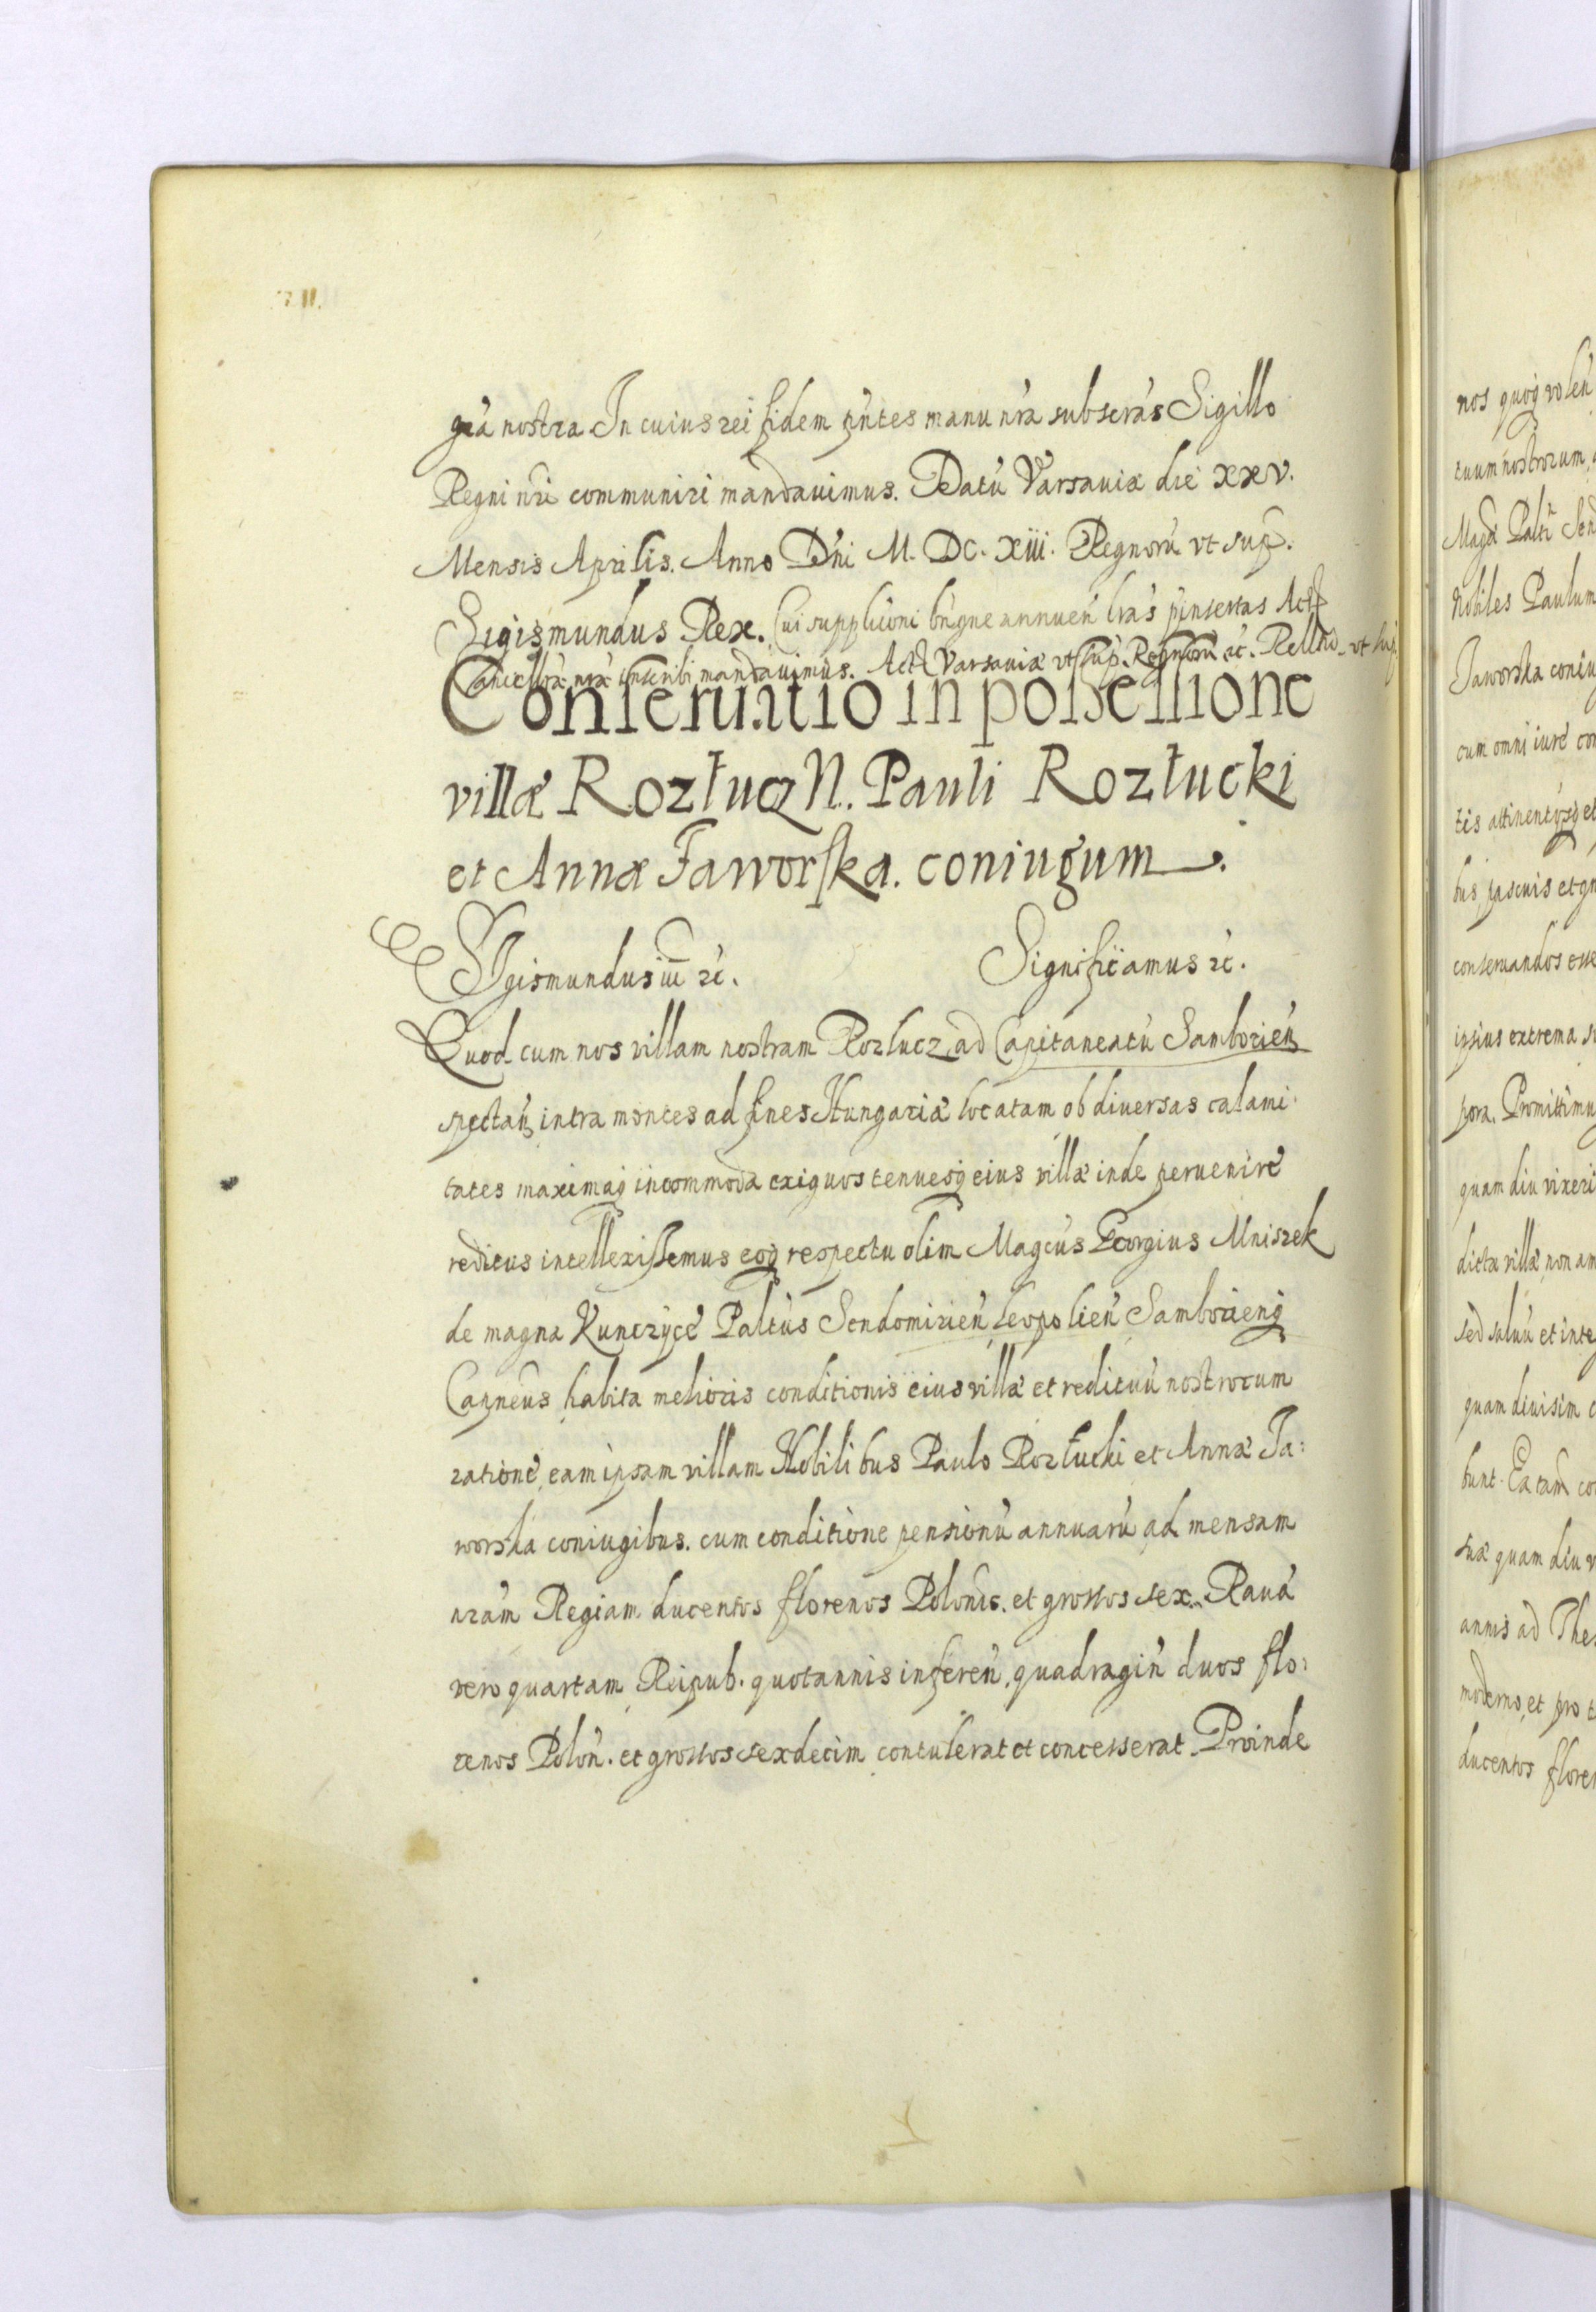 gra nostra In cuius rei fidem pntes manu nra subscras Sigillo
Regni nri communiri mandauimus. Datu Varsauiæ die XXV.
Mensis Aprilis. Anno Dni M. DC. XIII. Regnoru vt sup.
Sigismundus Rex. Cui supplicioni bngne annuen lras pinsertas Actis
Cancellræ nræ inscribi mandauimus. Act Varsauiæ vt sup. Regnoru ac. vt sup
Conseruatio in possessione
villæ Rozłucz N. Pauli Rozłucki
et Annæ Jaworska. coniugum.
Sigismundus iii zc. Significamus zc.
Quod cum nos villam nostram Rozlucz ad Capitaneatu Samborien
spectan intra montes ad fines Hungariæ locatam ob diuersas calami
tates maximaq incommoda exiguos tenuesq eius villæ inde peruenire
reditus intellexissemus eoq respectu olim Magcus Georgius Mniszek
de magna Kunczyce Paltus Sendomirien Leopolien Samborienq
Capneus habita melioris conditionis eius villæ et redituu nostrorum
ratione, eam ipsam villam Nobilibus Paulo Rozłucki et Annæ Ja:
worska coniugibus. cum conditione pensionu annuaru ad mensam
nram Regiam ducentos florenos Polonic. et grossos sex. Raua
vero quartam Reipub. quotannis inferen, quadragin duos flo:
renos Polon. et grossos sexdecim contulerat et concesserat. Proinde
nos quoq volen
tuum nostrorum
Magci Palti Send
Nobiles Paulum
Jaworska coniu
cum omni iure con
tis attinentysq et
bus, pascuis et
conseruandos esse
ipsius extrema
pora. Promittimus
quam diu vixeri
dicta villa non am
sed saluu et inte
quam diuisim
bunt. Ea tam co
sua quam diu v
annis ad Thes
moderno, et pro t
ducentos floren